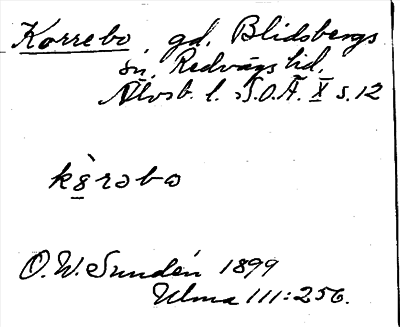 Korrebo, gd, Blidsbergs
sn, Redvägs hd,
Älvsb. l. S.O.Ä. X s. 12
kö̀rəbo
O.W. Sundén 1899
Ulma 111:256.